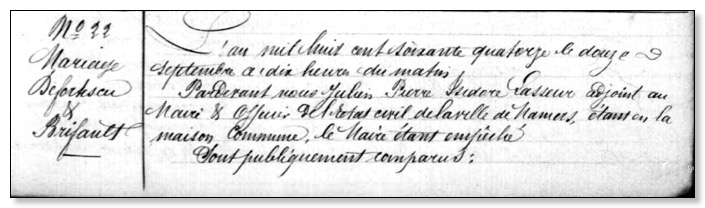 No 22
Mariage
Deforkseu
&
Brifault
L'an mil huit cent soixante quatorze le douze
septembre a dix heures du matin
Pardevant nous Julien Pierre Isidore Lasseur adjoint au
Maire & Officier de l'Etat civil de la ville de Mamers, étant en la
maison Commune, le Maire étant empêché
Sont publiquement comparus :